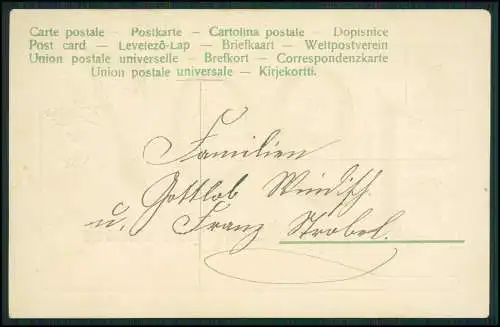 Carte postale – Postkarte – Cartolina postale – Dopisnice
Post card – Levelező-Lap – Briefkaart – Weltpostverein
Union postale universelle – Brefkort – Correspondenzkarte
Union postale universale – Kirjekortti.
Familien
Gottlob Windisch
u. Franz Strobel.